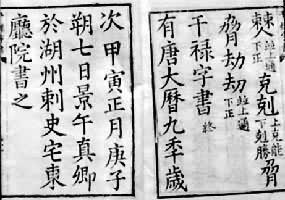 並上通下正克剋上克能下剋勝脅
脅劫刧並上通下正
干禄字書 終
有唐大曆九季歲
次甲寅正月庚子
朔七日景午真卿
於湖州刺史宅東
廳院書之